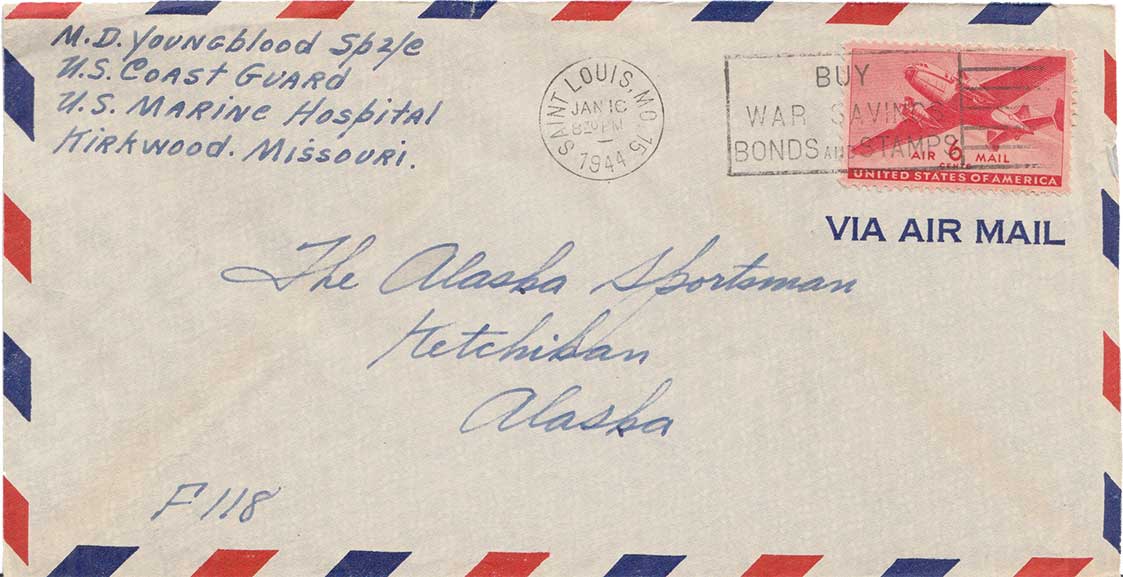 M.D. Youngblood Sp2/c
U.S. Coast Guard
U.S. Marine Hospital
Kirkwood. Missouri.
SAINT LOUIS, MO. 15
JAN 10
8 30 PM
1944
BUY
WAR SAVINGS
BONDS AND STAMPS
AIR 6 MAIL
CENTS
UNITED STATES OF AMERICA
VIA AIR MAIL
The Alaska Sportsman
Ketchikan
Alaska
F 118